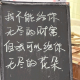 我不能给你
无尽的财富
但我可以给你
无尽的花朵